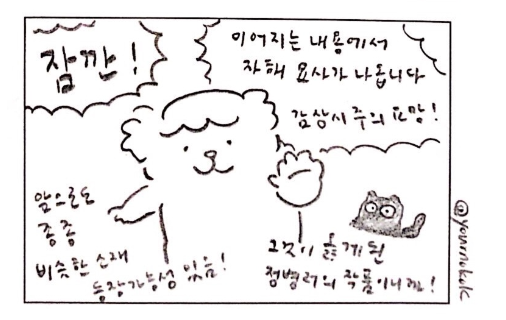 잠깐!
이어지는 내용에서
자해 묘사가 나옵니다
감상시 주의 요망!
앞으로도
종종
비슷한 소재
등장가능성 있음!
그것이
정병러의 작품이니까!
@younmokolk